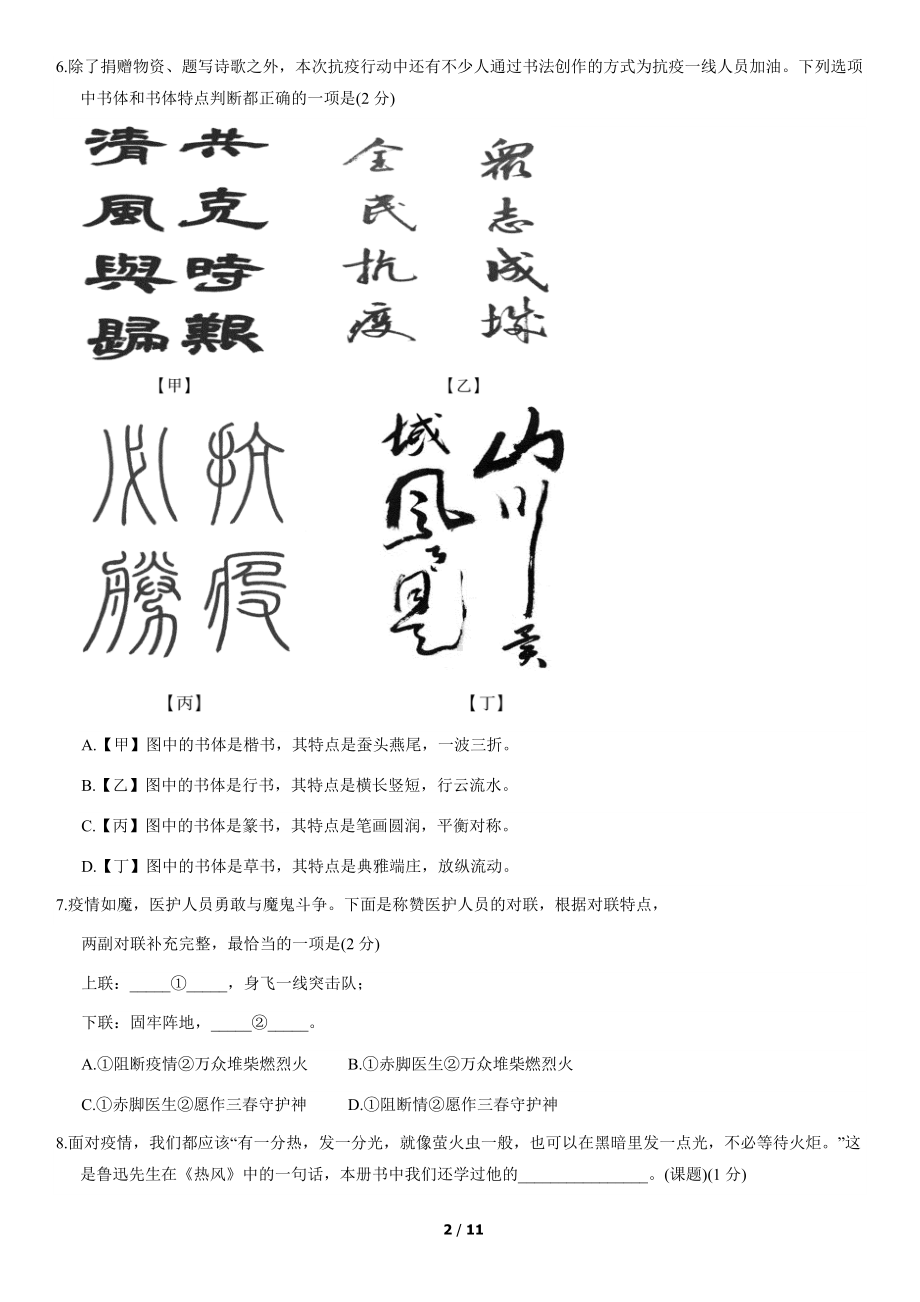 6.除了捐赠物资、题写诗歌之外，本次抗疫行动中还有不少人通过书法创作的方式为抗疫一线人员加油。下列选项
中书体和书体特点判断都正确的一项是(2 分)
共克時艱
清風與歸
眾志成城
全民抗疫
【甲】
【乙】
抗疫
必勝
山川異
域風月同天
【丙】
【丁】
A.【甲】图中的书体是楷书，其特点是蚕头燕尾，一波三折。
B.【乙】图中的书体是行书，其特点是横长竖短，行云流水。
C.【丙】图中的书体是篆书，其特点是笔画圆润，平衡对称。
D.【丁】图中的书体是草书，其特点是典雅端庄，放纵流动。
7.疫情如魔，医护人员勇敢与魔鬼斗争。下面是称赞医护人员的对联，根据对联特点，
两副对联补充完整，最恰当的一项是(2 分)
上联：_____①_____，身飞一线突击队；
下联：固牢阵地，_____②_____。
A.①阻断疫情②万众堆柴燃烈火 B.①赤脚医生②万众堆柴燃烈火
C.①赤脚医生②愿作三春守护神 D.①阻断情②愿作三春守护神
8.面对疫情，我们都应该“有一分热，发一分光，就像萤火虫一般，也可以在黑暗里发一点光，不必等待火炬。”这
是鲁迅先生在《热风》中的一句话，本册书中我们还学过他的________________。(课题)(1 分)
2 / 11